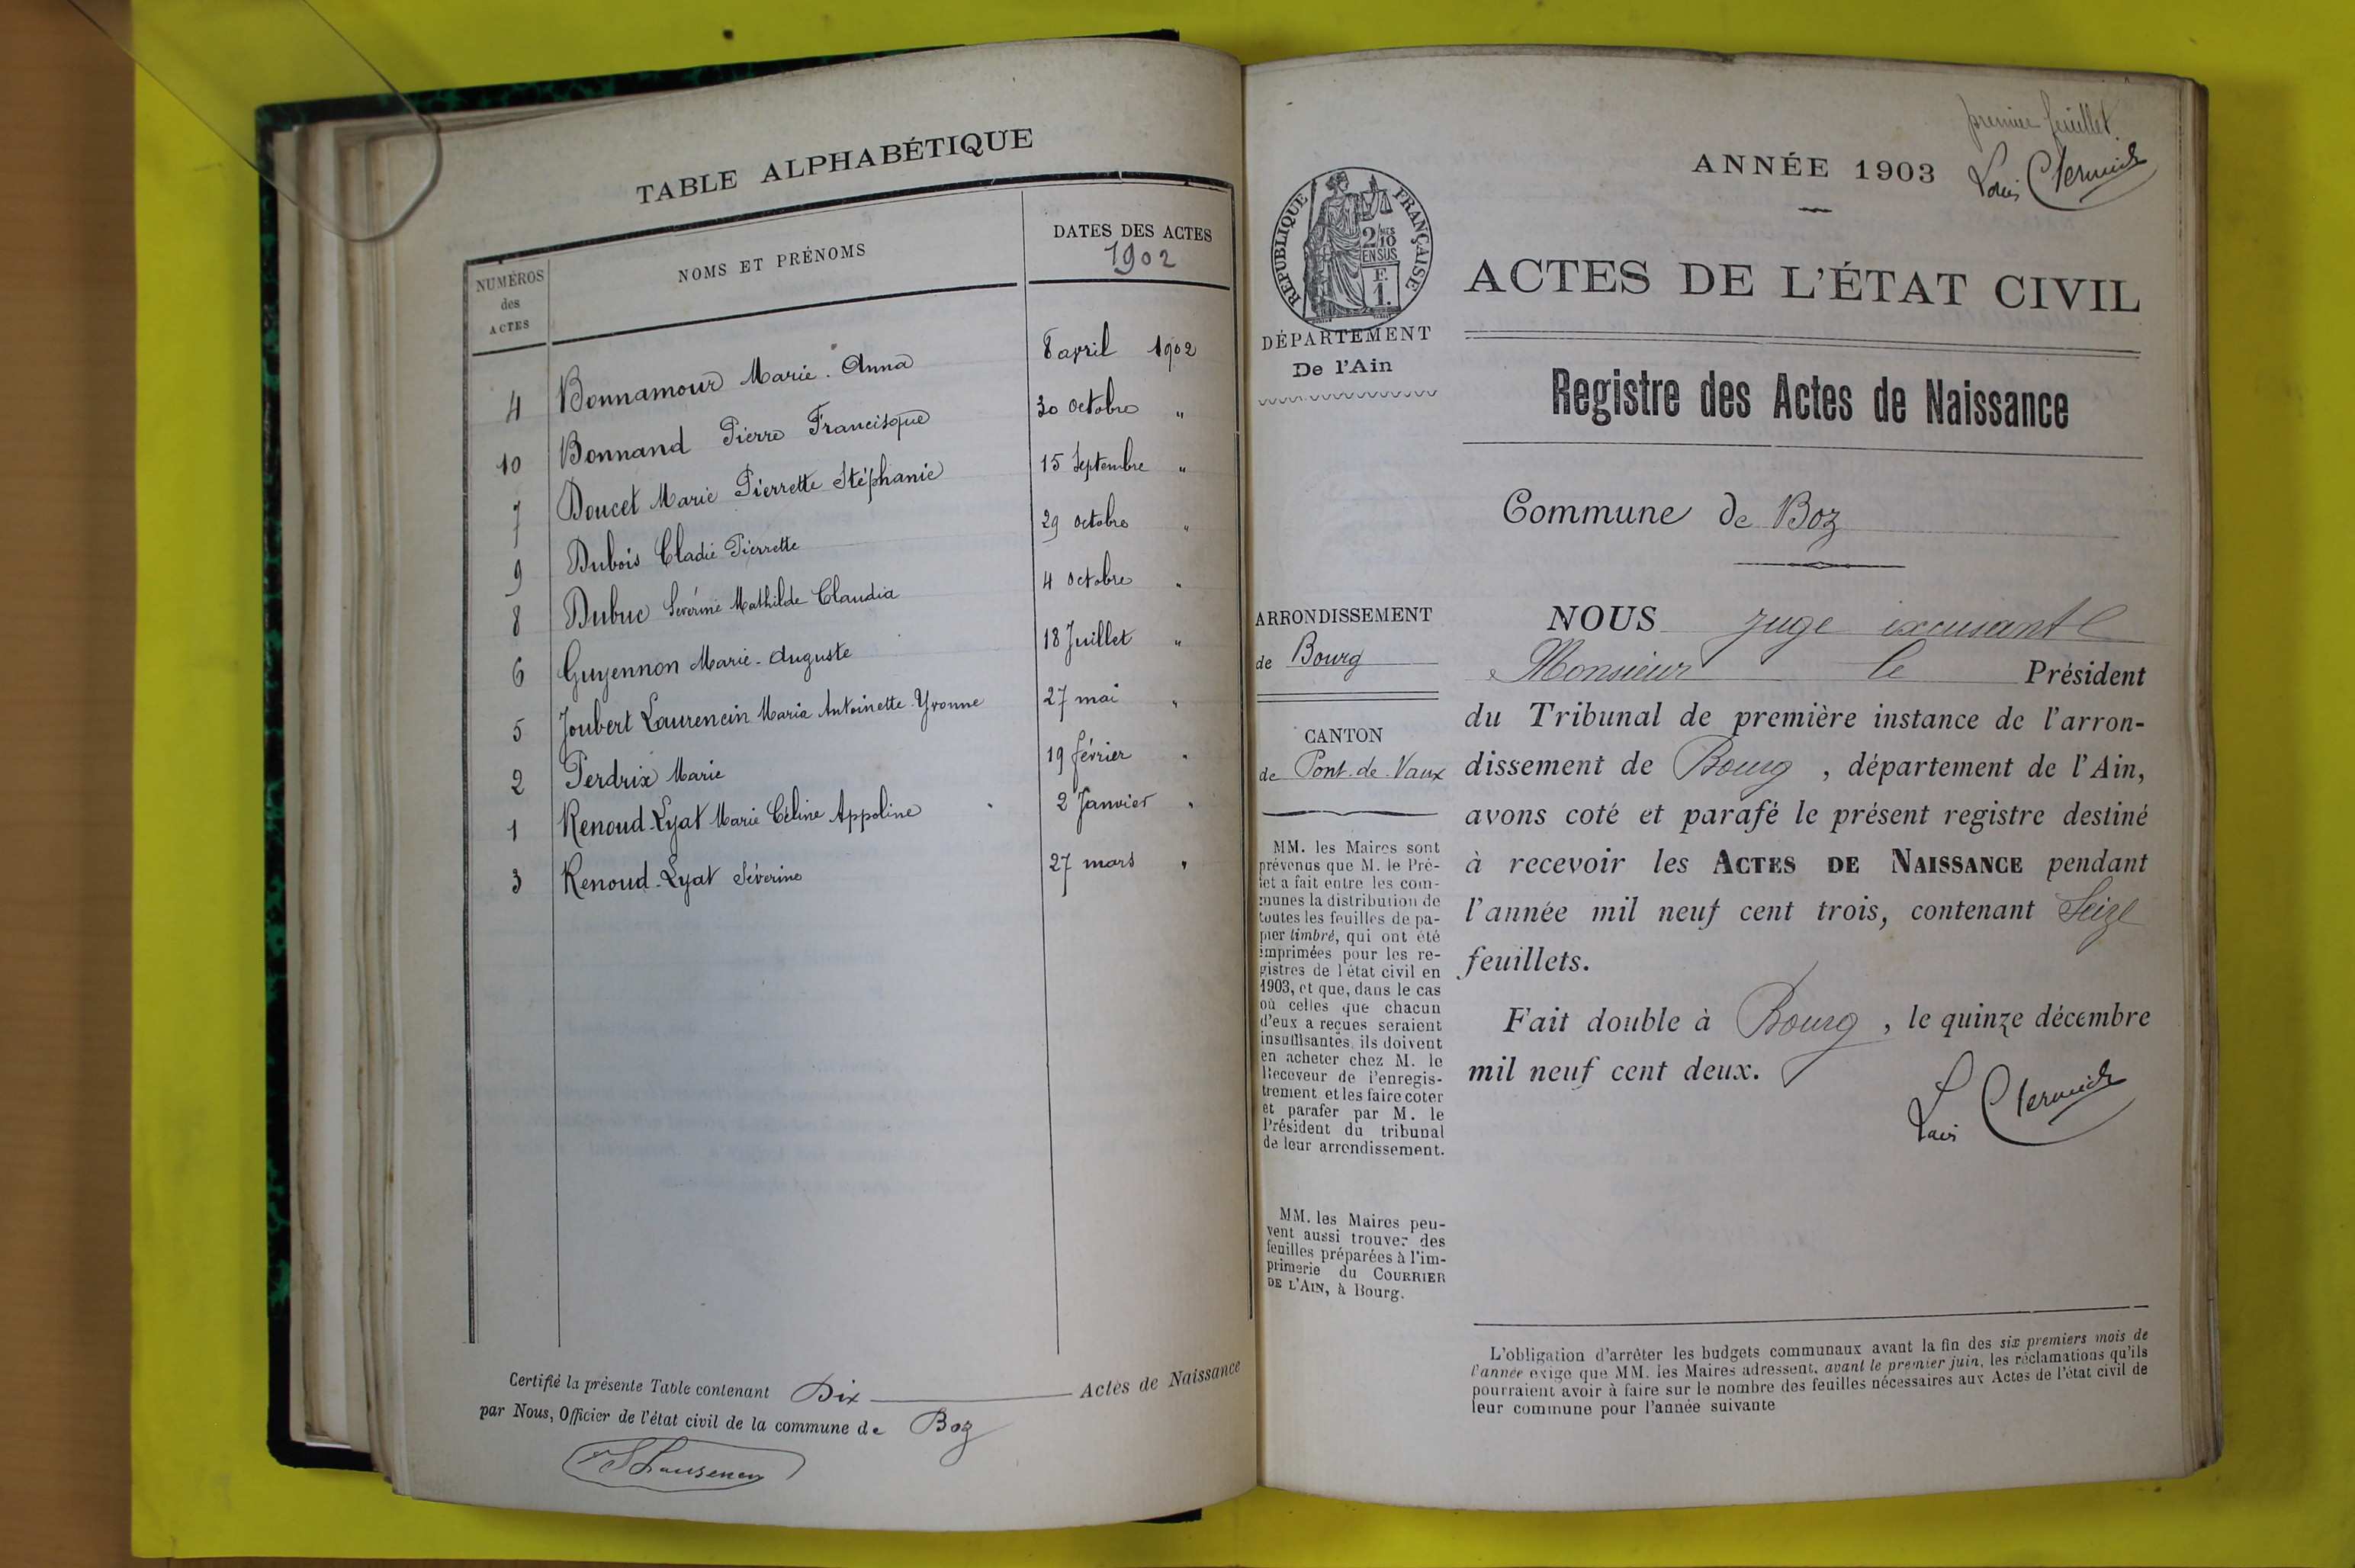 TABLE ALPHABÉTIQUE
NUMÉROS
des
ACTES
NOMS ET PRÉNOMS
DATES DES ACTES
1902
4 Bonnamour Marie. Anna 8 avril 1902
10 Bonnand Pierre Francisque 30 octobre "
7 Doucet Marie Pierrette Stéphanie 15 Septembre "
9 Dubois Cladie Pierrette 29 octobre "
8 Dubuc Séverine Mathilde Claudia 4 octobre "
6 Guyennon Marie-Auguste 18 Juillet "
5 Joubert Laurencin Maria Antoinette-Yvonne 27 mai "
2 Perdrix Marie 19 février "
1 Renoud-Lyat Marie Céline Appoline 2 Janvier "
3 Renoud-Lyat Séverine 27 mars "
Certifié la présente Table contenant Dix Actes de Naissance
par Nous, Officier de l'état civil de la commune de Boz
premier feuillet.
ANNÉE 1903
Louis
RÉPUBLIQUE FRANÇAISE
2/10
EN SUS
F.
1.
DÉPARTEMENT
De l'Ain
ACTES DE L'ÉTAT CIVIL
Registre des Actes de Naissance
Commune de Boz
ARRONDISSEMENT
de Bourg
CANTON
de Pont-de-Vaux
MM. les Maires sont
prévenus que M. le Pré-
fet a fait entre les com-
munes la distribution de
toutes les feuilles de pa-
pier timbré, qui ont été
imprimées pour les re-
gistres de l'état civil en
1903, et que, dans le cas
où celles que chacun
d'eux a reçues seraient
insuffisantes, ils doivent
en acheter chez M. le
Receveur de l'enregis-
trement et les faire coter
et parafer par M. le
Président du tribunal
de leur arrondissement.
MM. les Maires peu-
vent aussi trouver des
feuilles préparées à l'im-
primerie du COURRIER
DE L'AIN, à Bourg.
NOUS juge excusant
Monsieur le Président
du Tribunal de première instance de l'arron-
dissement de Bourg, département de l'Ain,
avons coté et parafé le présent registre destiné
à recevoir les ACTES DE NAISSANCE pendant
l'année mil neuf cent trois, contenant Seize
feuillets.
Fait double à Bourg, le quinze décembre
mil neuf cent deux.
L'obligation d'arrêter les budgets communaux avant la fin des six premiers mois de
l'année exige que MM. les Maires adressent, avant le premier juin, les réclamations qu'ils
pourraient avoir à faire sur le nombre des feuilles nécessaires aux Actes de l'état civil de
leur commune pour l'année suivante